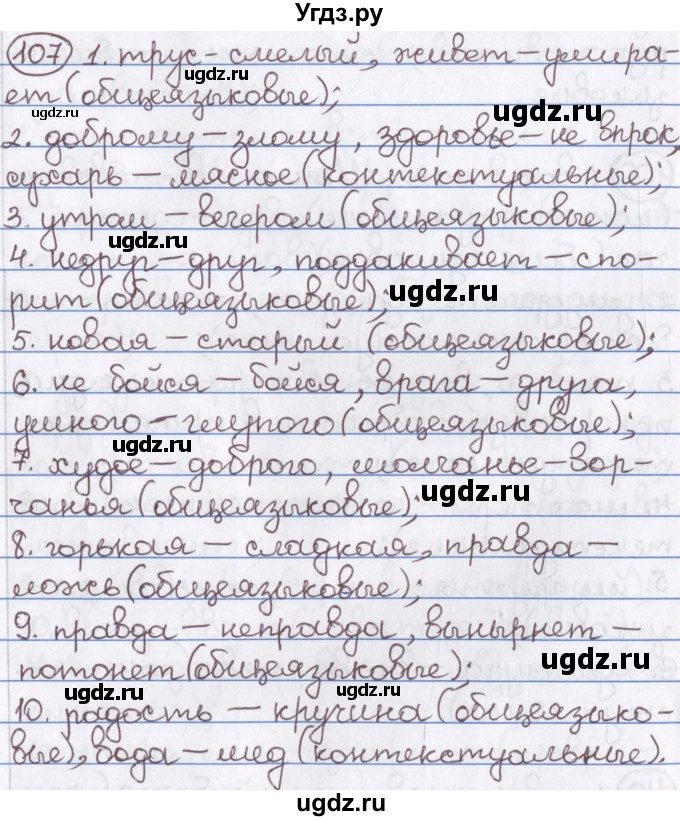 Угдз.ру
107 1. трус – смелый, живет – умира-
ugdz.ru
ugdz.ru
ет (общеязыковые);
ugdz.ru
2. доброму – злому, здоровье – не впрок,
ugdz.ru
сухарь – мясное (контекстуальные);
3. утрам – вечером (общеязыковые);
ugdz.ru
4. недруг – друг, поддакивает – спо-
рит (общеязыковые);
ugdz.ru
5. новая – старый (общеязыковые);
6. не бойся – бойся, врага – друга,
умного – глупого (общеязыковые);
ugdz.ru
7. худое – доброго, молчанье – вор-
чанья (общеязыковые);
ugdz.ru
8. горькая – сладкая, правда –
ложь (общеязыковые);
9. правда – неправда, вынырнет –
ugdz.ru
потонет (общеязыковые);
ugdz.ru
ugdz.ru
10. радость – кручина (общеязыко-
вые), вода – мед (контекстуальные).
ugdz.ru
ugdz.ru
ugdz.ru